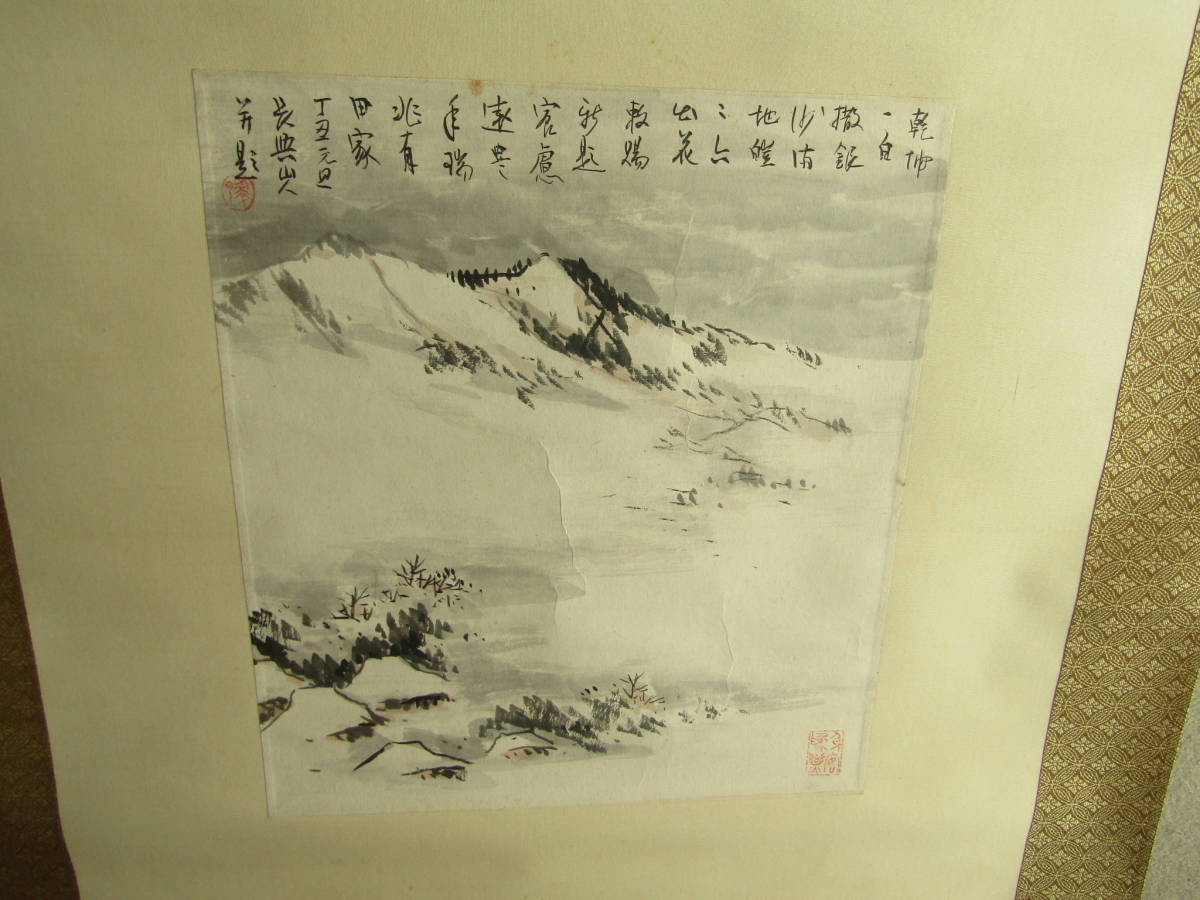 乾坤
一白
撒銀
沙滿
地皚
〻六
出花
敕賜
新題
宦慮
遠豊
年瑞
兆有
田家
丁丑元旦
長興山人
并題